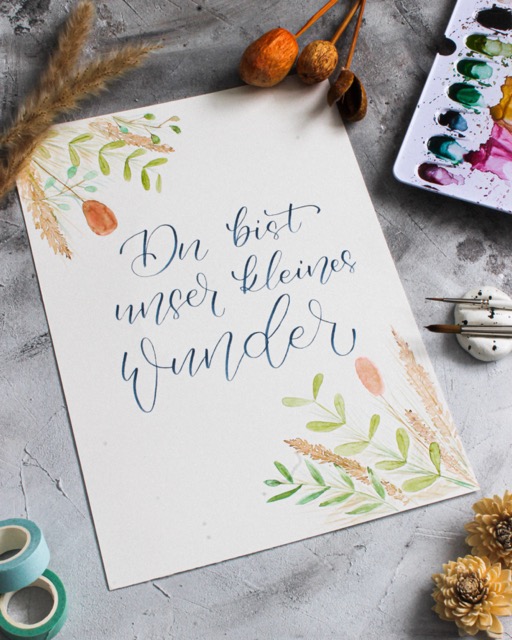 Du bist
unser kleines
Wunder